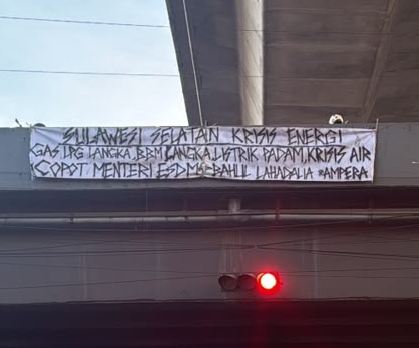 SULAWESI SELATAN KRISIS ENERGI
GAS LPG LANGKA, BBM LANGKA, LISTRIK PADAM, KRISIS AIR
COPOT MENTERI ESDM BAHLIL LAHADALIA #AMPERA